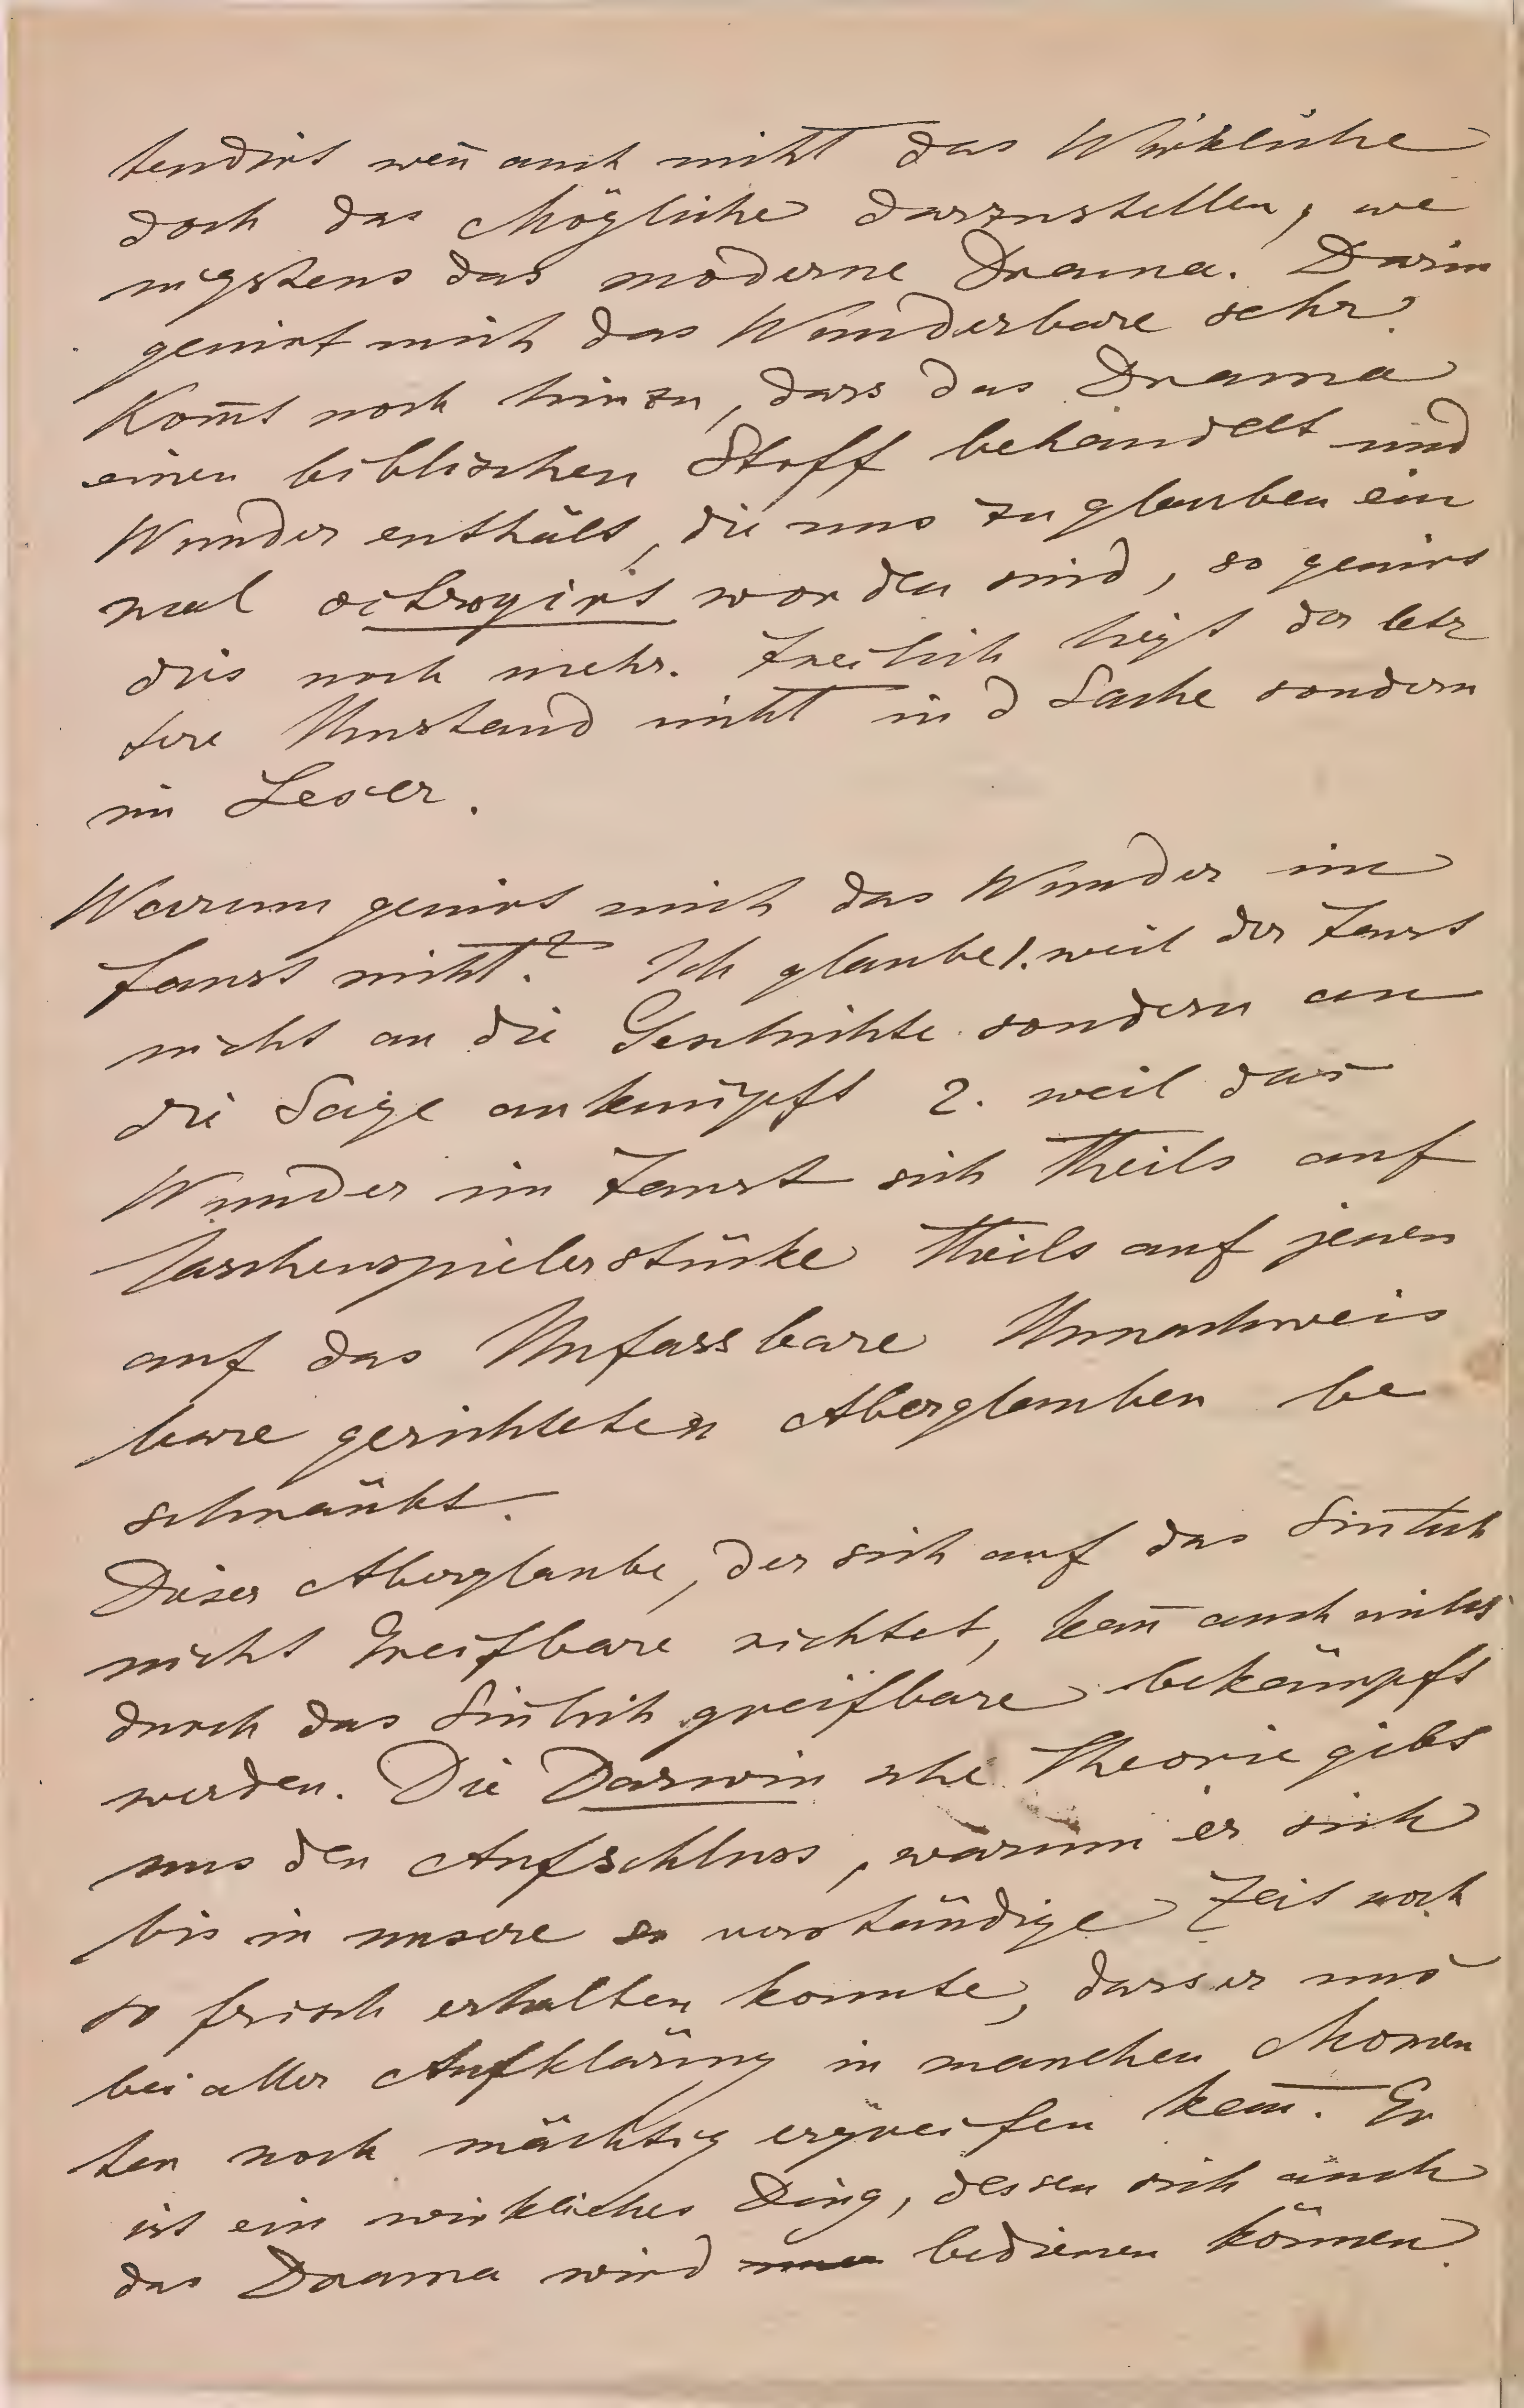 tendirt weñ auch nicht das Wirkliche
doch das Mögliche darzustellen, we
nigstens das moderne Drama. Darin
genirt mich das Wunderbare sehr.
Kom̄t noch hinzu, dass das Drama
einen biblischen Stoff behandelt und
Wunder enthält, die uns zu glauben ein
mal octroyirt worden sind, so genirt
dies noch mehr. Freilich liegt der letz
tere Umstand nicht in d Sache sondern
im Leser.
Warum genirt mich das Wunder im
Faust nicht? Ich glaube 1. weil der Faust
nicht an die Geschichte sondern an
die Sage anknüpft 2. weil das
Wunder im Faust sich theils auf
Taschenspielerstücke theils auf jenen
auf das Unfassbare Unnachweis
bare gerichteten Aberglauben be
schränkt.
Dieser Aberglaube, der sich auf das Siñlich
nicht Greifbare richtet, kañ auch nicht
durch das Siñlich greifbare bekämpft
werden. Die Darwin sche Theorie gibt
uns den Aufschluss, warum er sich
bis in unsere so verständige Zeit noch
so frisch erhalten konnte, dass er uns
bei aller Aufklärung in manchen Momen
ten noch mächtig ergreifen kañ. Er
ist ein wirkliches Ding, dessen sich auch
das Drama wird bedienen können.